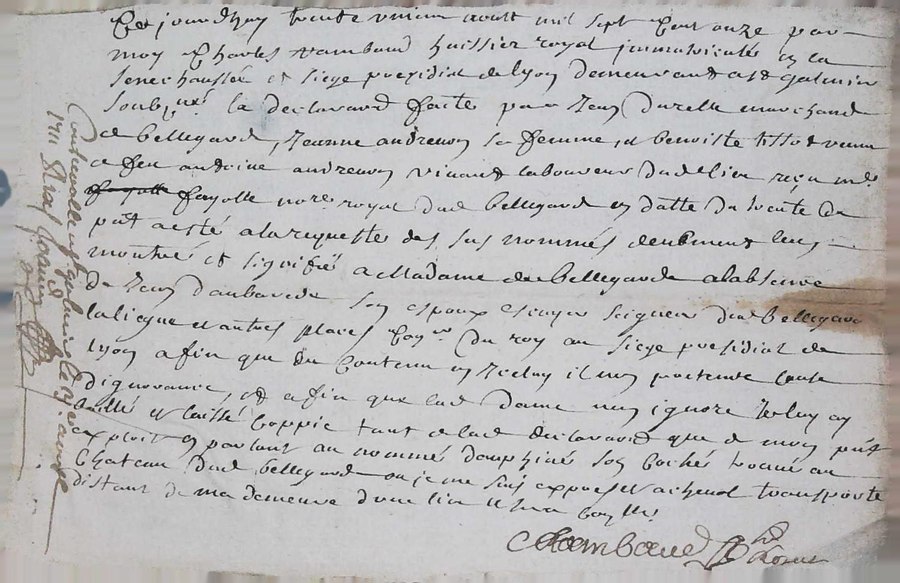 Ce jourdhuy trente unieme aoust mil sept cent onze par
moy Charles Chambaud huissier royal immatriculé en la
senechaussée et siege presidial de lyon demeurant a st galmier
soubzné la declaraon faicte par Jean Durelle marchand
de bellegarde, Jeanne andrevon sa femme, et benoiste tissot veuve
a feu antoine andrevon vivant laboureur dud lieu reçu me
fayolle nore royal dud bellegarde en datte du trente du
pnt a esté a la requeste des sus nommés deubment leus
montrée et signifié a Madame de bellegarde a labsence
de son espoux escuyer seigneur dud bellegarde
et autres places Coner du roy au siege presidial de
lyon a fin que du contenu en Iceluy il nen pretende cause
dignorance, et a fin que lad dame nen ignore Je luy ay
baillé et laissé coppie tant de lad declaraon que de mon pnt
exploit en parlant au nommé dauphiné son cochér trouvé au
Chateau dud bellegarde ou je me suis exprès et a cheval transporté
distant de ma demeure dune lieue
Chambaud
Controollé a st galmier le
1711